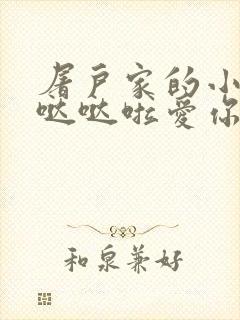 屠户家的小
哒哒啦爱你
和泉兼好